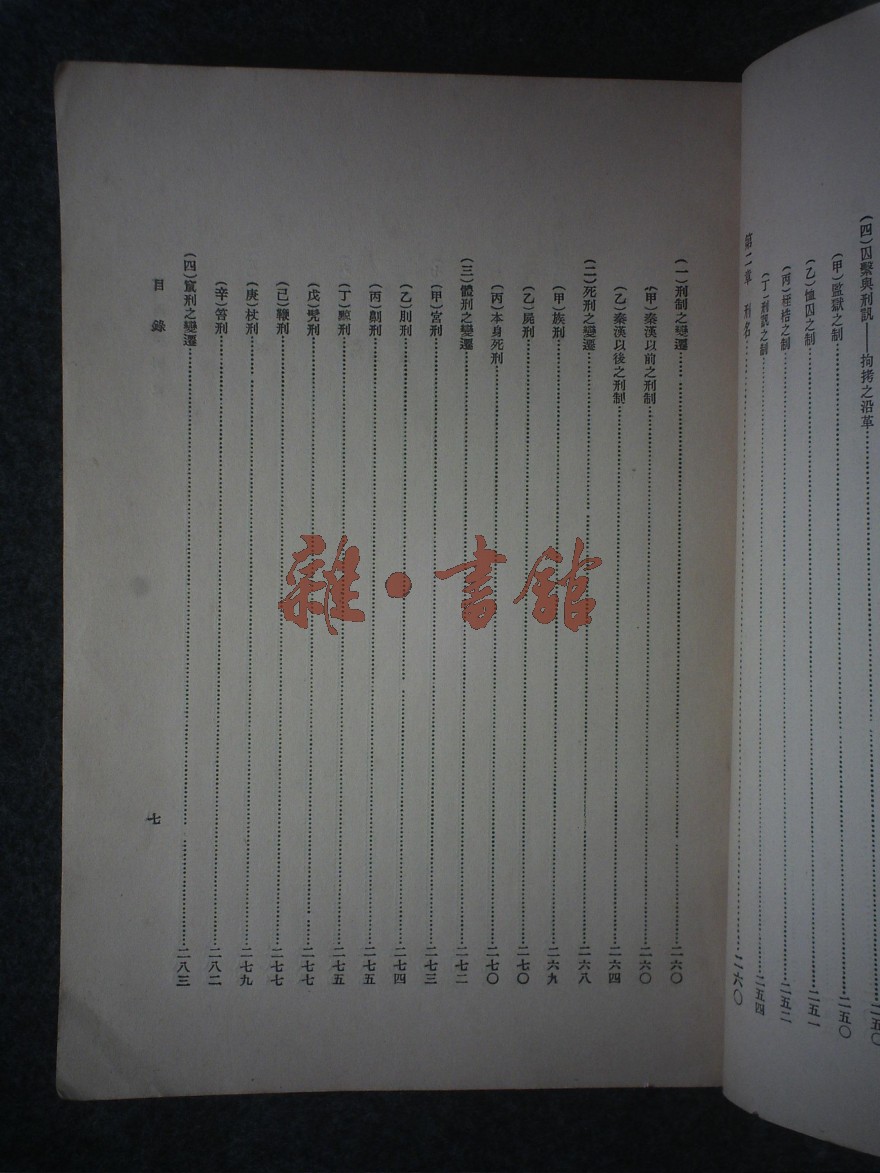 (四)囚繫與刑訊——拘拷之沿革……二五〇
(甲)監獄之制……二五〇
(乙)恤囚之制……二五一
(丙)桎梏之制……二五二
(丁)刑訊之制……二五四
第二章 刑名……二六〇
(一)刑制之變遷……二六〇
(甲)秦漢以前之刑制……二六〇
(乙)秦漢以後之刑制……二六四
(二)死刑之變遷……二六八
(甲)族刑……二六九
(乙)屍刑……二七〇
(丙)本身死刑……二七〇
(三)體刑之變遷……二七二
(甲)宮刑……二七三
(乙)刖刑……二七四
(丙)劓刑……二七五
(丁)黥刑……二七五
(戊)髡刑……二七七
(己)鞭刑……二七七
(庚)杖刑……二七九
(辛)笞刑……二八二
(四)竄刑之變遷……二八三
目錄
七
雜·書館